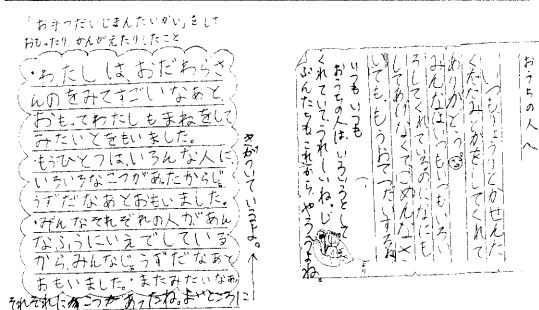 「お手つだいじまんたいかい」をして
おもったり かんがえたりしたこと
・わたしは、おだわらさ
んのをみてすごいなあと
おもってわたしもまねをして
みたいとをもいました。
もうひとつは、いろんな人に
いろいろなこつがあったからじょ
うずだなあとおもいました。
・みんなそれぞれの人があん
なふうにいえでしている
から、みんなじょうずだなあと
おもいました。・またみたいなあ
それぞれにこつがあったね。よいところに
気がついているよ。
おうちの人へ
いつもりょうりとかせんた
くだなみかをしてくれて
ありがとう
みんなはいつもいつもいろい
ろしてくれているのになにも
してあげなくてごめんなさ
いでも、もうおてつだいするね
いつもいつも
おうちの人は、いろいろとして
くれていて、うれしいね。じ
ぶんたちもこれからやろうよね。